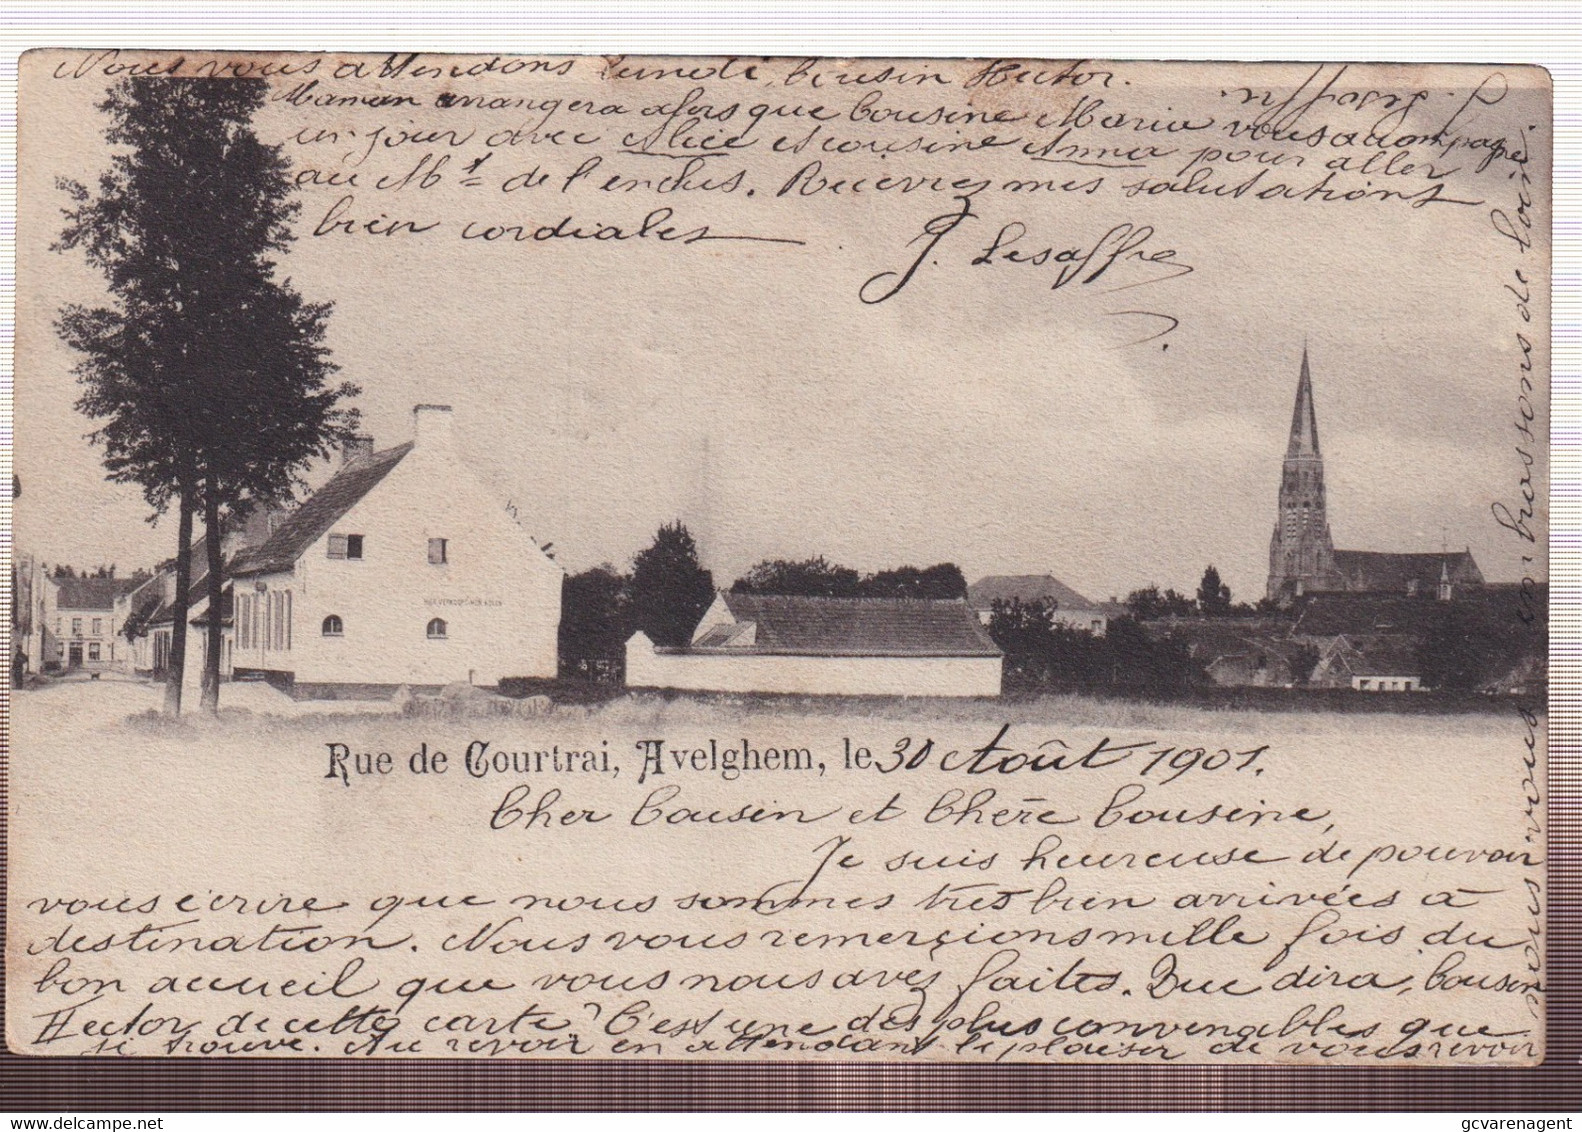 Nous vous attendons lundi, Cousin Hector.
Maman arrangera alors que Cousine Maria vous accompagne
un jour avec Alice et cousine Anna pour aller
au Mt de l'enclus. Recevez mes salutations
bien cordiales
J. Lesaffre
HIER VERKOOPT MEN
Rue de Courtrai, Avelghem, le 30 Août 1901.
Cher Cousin et Chère Cousine,
Je suis heureuse de pouvoir
vous écrire que nous sommes très bien arrivées à
destination. Nous vous remerçions mille fois du
bon accueil que vous nous avez faites. Que dira, Cousin
Hector, de cette carte? C'est une des plus convenables que
si trouve. Au revoir en attendant le plaisir de vous revoir
nous vous embrassons de loin.
J. Lesaffre.
Delcampe.net
gcvarenagent